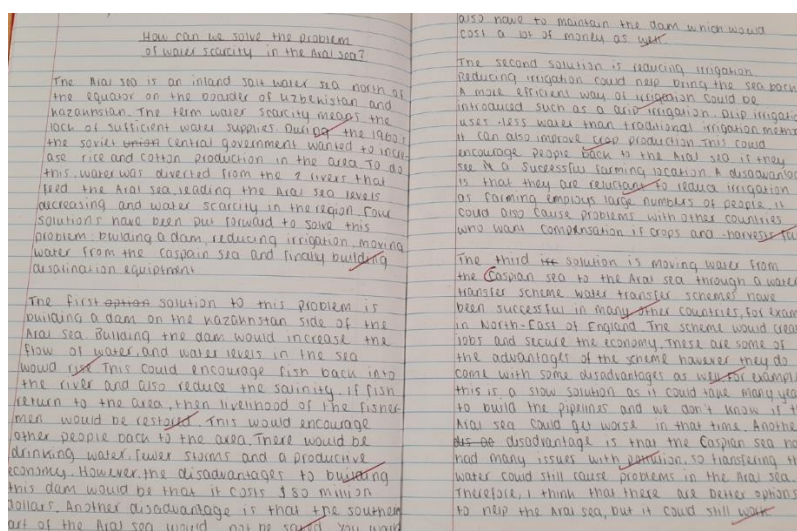 How can we solve the problem
of water scarcity in the Aral sea?
The Aral sea is an inland salt water sea north of
the equator on the boarder of Uzbekistan and
Kazakhstan. The term water scarcity means the
lack of sufficient water supplies. During the 1960s
the soviet union central government wanted to incre-
ase rice and cotton production in the area. To do
this, water was diverted from the 2 rivers that
feed the Aral sea, leading the Aral sea levels
decreasing and water scarcity in the region. Four
solutions have been put forward to solve this
problem: building a dam, reducing irrigation, moving
water from the Caspain sea and finally building
desalination equiptment
The first option solution to this problem is
building a dam on the Kazakhstan side of the
Aral sea. Building the dam would increase the
flow of water, and water levels in the sea
would rise. This could encourage fish back into
the river and also reduce the salinity. If fish
return to the area, then livelihood of the fisher-
men would be restored. This would encourage
other people back to the area. There would be
drinking water, fewer storms and a productive
economy. However, the disadvantages to building
this dam would be that it costs $80 million
dollars. Another disadvantage is that the southern
art of the Aral sea would not be saved. You woul
also have to maintain the dam which would
cost a lot of money as well.
The second solution is reducing irrigation.
Reducing irrigation could help bring the sea back
A more efficient way of irrigation could be
introduced such as a drip irrigation. Drip irrigatio
uses less water than traditional irrigation metho
it can also improve crop production. This could
encourage people back to the Aral sea if they
see it a successful farming location. A disadvantag
is that they are reluctant to reduce irrigation
as farming employs large numbers of people. it
could also cause problems with other countries
who want compensation if crops and harvests fai
The third is solution is moving water from
the Caspian sea to the Aral sea through a water
transfer scheme. water transfer schemes have
been successful in many other countries, for exam
in North-East of England. The scheme would creat
jobs and secure the economy. These are some of
the advantages of the scheme however they do
come with some disadvantages as well. For example
this is a slow solution as it could take many yea
to build the pipelines and we don't know if t
Aral sea could get worse in that time. Anothe
disadvantage is that the Caspian sea ha
had many issues with pollution, so transfering th
water could still cause problems in the Aral sea.
Therefore, I think that there are better options
to help the Aral sea, but it could still work